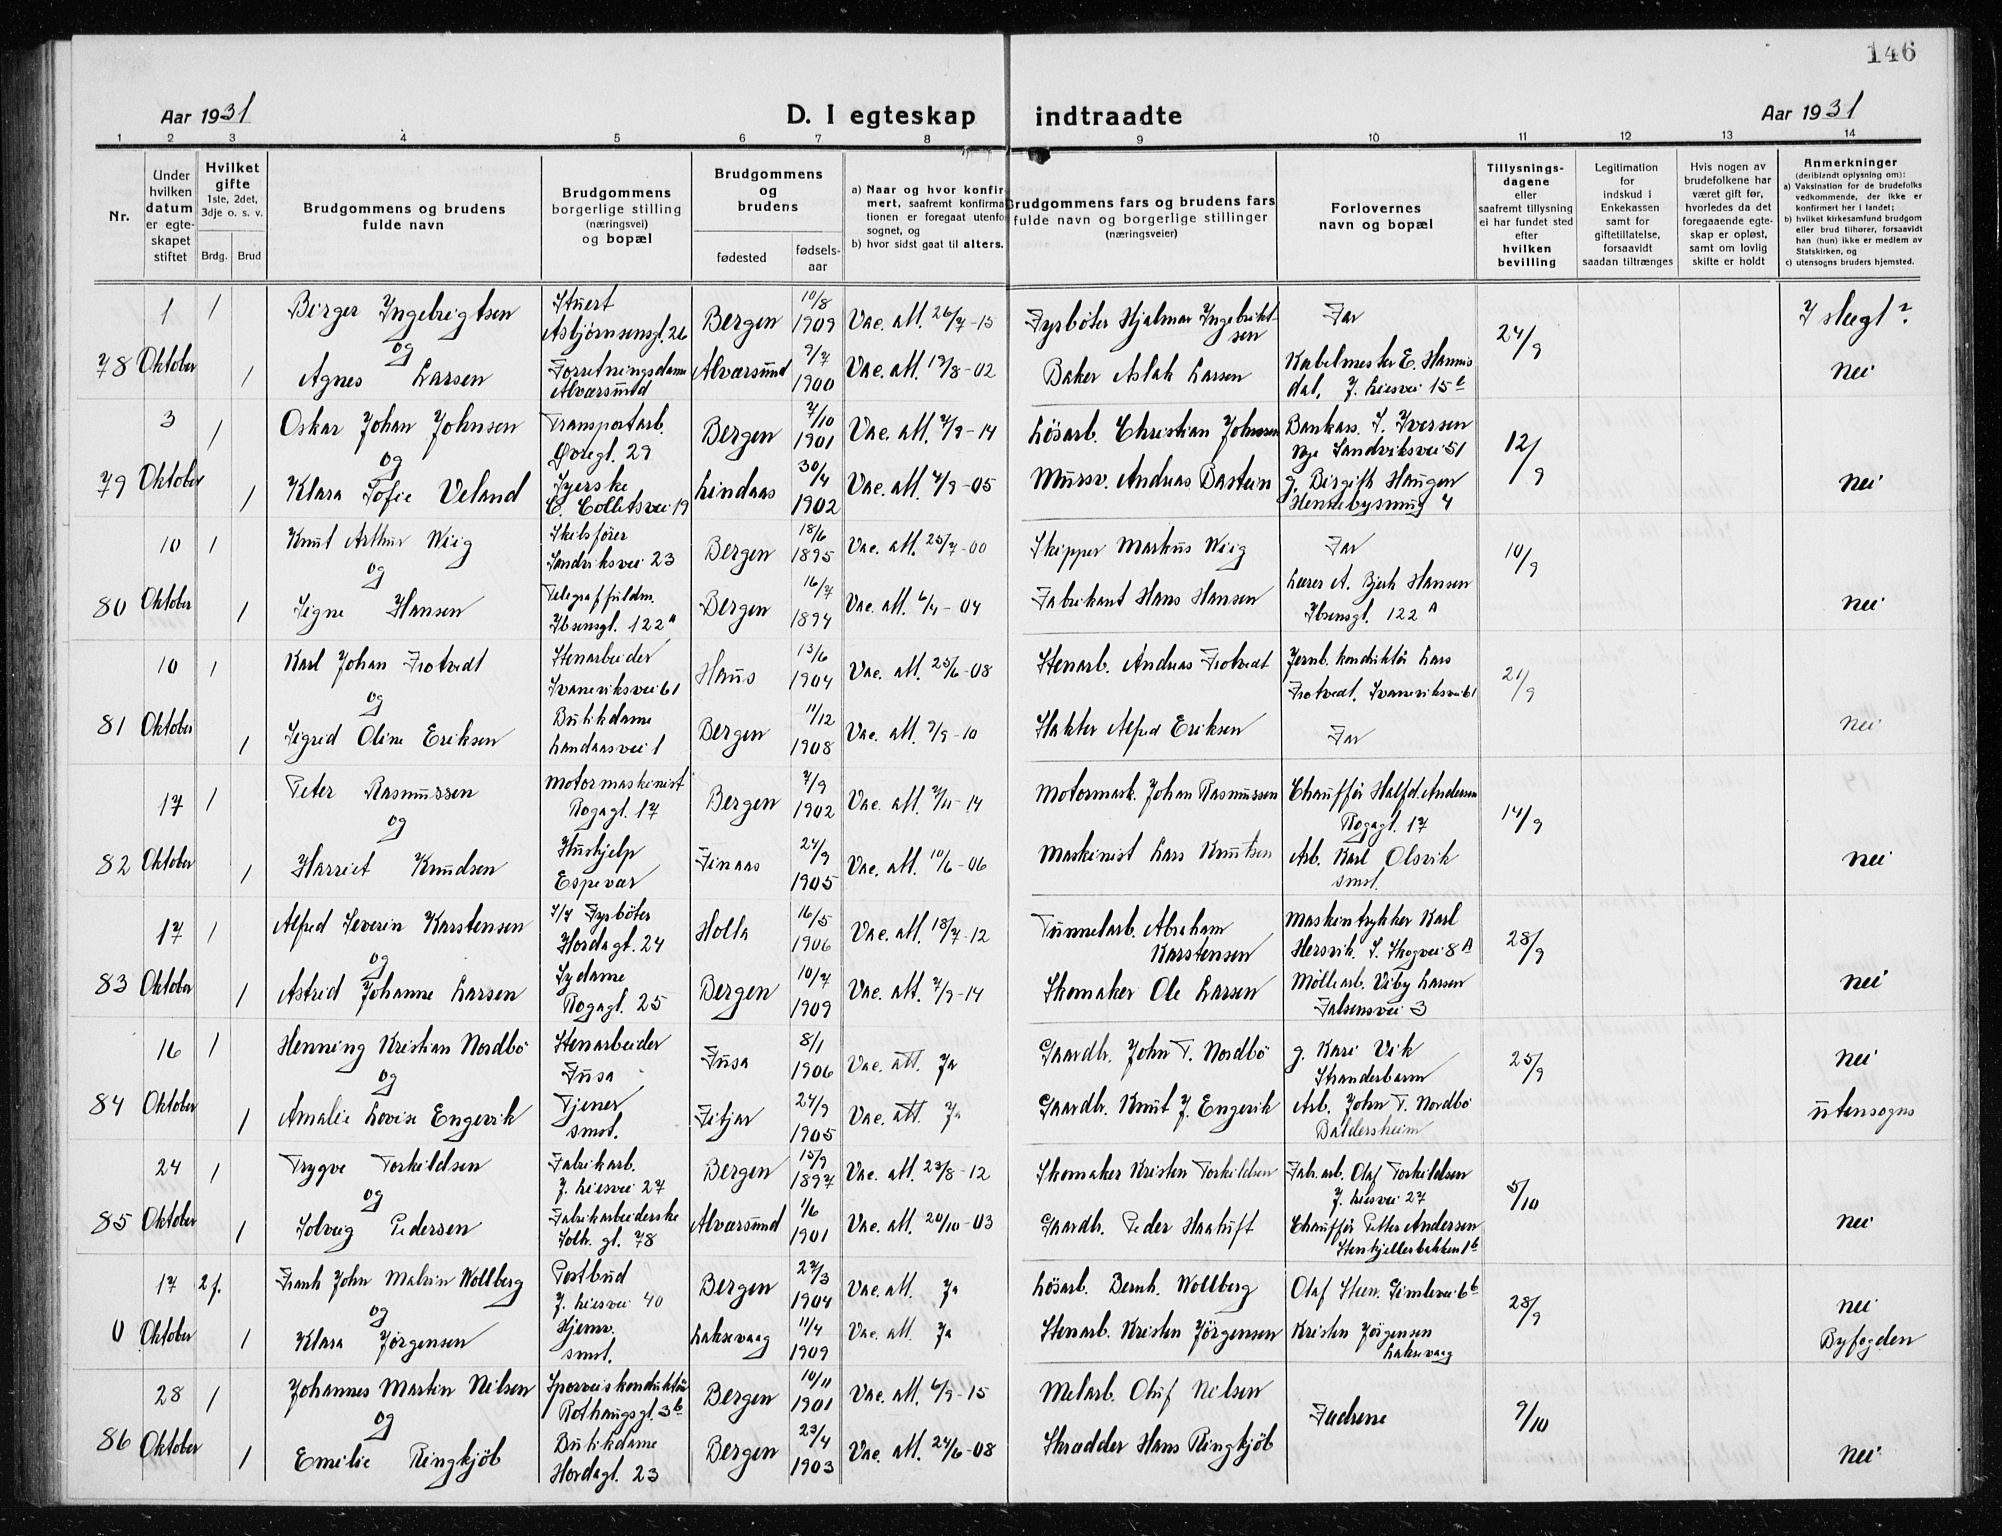 146
Aar 1931
D. I egteskap indtraadte
Aar 1931
1 2 3 4 5 6 7 8 9 10 11 12 13 14
Nr.
Under hvilken datum er egte-skapet stiftet
Hvilket gifte 1ste, 2det, 3dje o. s. v.
Brdg. Brud
Brudgommens og brudens fulde navn
Brudgommens borgerlige stilling (næringsvei) og bopæl
Brudgommens og brudens
fødested fødsels-aar
a) Naar og hvor konfir-mert, saafremt konfirma-tionen er foregaat utenfor sognet, og
b) hvor sidst gaat til alters.
Brudgommens fars og brudens fars fulde navn og borgerlige stillinger (næringsveier)
Forlovernes navn og bopæl
Tillysnings-dagene eller saafremt tillysning ei har fundet sted efter hvilken bevilling
Legitimation for indskud i Enkekassen samt for giftetillatelse, forsaavidt saadan tiltrænges
Hvis nogen av brudefolkene har været gift før, hvorledes da det foregaaende egte-skap er opløst, samt om lovlig skifte er holdt
Anmerkninger (deriblandt oplysning om):
a) Vaksination for de brudefolks vedkommende, der ikke er konfirmert her i landet;
b) hvilket kirkesamfund brudgom eller brud tilhører, forsaavidt han (hun) ikke er medlem av Statskirken, og
c) utensogns bruders hjemsted.
1 1 Birger Ingebrigtsen Stuert Asbjørnsensgt. 26 Bergen 10/8 1909 Vac. att. 26/7-15 Fyrbøter Hjalmar Ingebrikt-sen Far 24/9 I slegt?
og
78 Oktober 1 Agnes Larsen Forretningsdame Alversund Alversund 9/7 1900 Vac. att. 13/8-02 Baker Aslak Larsen Kabelmester E. Hannisdal, J. Liesvei 15b nei
3 1 Oskar Johan Johnsen Transportarb. Øvregt. 29 Bergen 7/10 1901 Vac. att. 7/9-14 Løsarb. Christian Johnsen Bankass. S. Iversen Nye Sandviksvei 51 12/9
og
79 Oktober 1 Klara Sofie Veland Syerske C. Colletsvei 19 Lindaas 30/4 1902 Vac. att. 7/9-05 Mursv. Andreas Bastein g. Birgit Haugen 4 nei
10 1 Knut Arthur Wiig Skibsfører Sandviksvei 23 Bergen 18/6 1895 Vac. att. 25/7-00 Skipper Markus Wiig Far 10/9
og
80 Oktober 1 Signe Hansen Telegraffuldm. Ibsensgt. 122a Bergen 16/7 1894 Vac. att. 6/4-04 Fabrikant Hans Hansen Lærer A. Bjerk Hansen Ibsensgt. 122A nei
10 1 Karl Johan Frotvedt Stenarbeider Svaneviksvei 61 Haus 13/6 1904 Vac. att. 25/6-08 Stenarb. Andreas Frotvedt Jernb. konduktør Lars Frotvedt, Svaneviksvei 61 21/9
og
81 Oktober 1 Sigrid Oline Eriksen Butikdame Landaasvei 1 Bergen 11/12 1908 Vac. att. 7/9-10 Slakter Alfred Eriksen Far nei
17 1 Peter Rasmussen Motormaskinist Rogagt. 17 Bergen 7/9 1902 Vac. att. 7/11-14 Motormask. Johan Rasmussen Chauffør Halfd. Andersen Rogagt. 17 14/9
og
82 Oktober 1 Harriet Knudsen Hushjelp Espevær Finaas 27/9 1905 Vac. att. 10/6-06 Maskinist Lars Knutsen Arb. Karl Olsvik smst. nei
17 1 Alfred Severin Karstensen S/S Fyrbøter Hordagt. 24 Holla 16/5 1906 Vac. att. 18/7-12 Tunnelarb. Abraham Karstensen Maskintrykker Karl Hersvik, S. Skogvei 8A 28/9
og
83 Oktober 1 Astrid Johanne Larsen Sydame Rogagt. 25 Bergen 10/7 1909 Vac. att. 7/9-14 Skomaker Ole Larsen Møllearb. Viby Larsen Falsensvei 3 nei
16 1 Henning Kristian Nordbö Stenarbeider Fusa Fusa 8/1 1906 Vac. att. Ja Gaardbr. John T. Nordbö g. Kari Vik Strandebarm 25/9 nei
og
84 Oktober 1 Amalie Lovise Engevik Tjener smst. Fitjar 27/9 1905 Vac. att. Ja Gaardbr. Knut J. Engevik Arb. John T. Nordbö Baldersheim utensogns
24 1 Trygve Torkildsen Fabrikarb. J. Liesvei 27 Bergen 15/9 1897 Vac. att. 23/8-12 Skomaker Kristen Torkildsen Fabr.arb. Olaf Torkildsen J. Liesvei 27 5/10
og
85 Oktober 1 Solveig Pedersen Fabrikarbeiderske Solh. gt. 78 Alversund 1/6 1901 Vac. att. 20/10-03 Gaardbr. Peder Haatuft Chauffør Petter Andersen Stenkjellerbakken 1b nei
17 2f. Frank John Malvin Wollberg Postbud J. Liesvei 40 Bergen 27/3 1904 Vac. att. Ja Løsarb. Bernh. Wollberg Olaf Steen, Gimlevei 6b 28/9 nei
og
0 Oktober 1 Klara Jørgensen Hjemv. smst. Laksevaag 11/4 1909 Vac. att. Ja Stenarb. Kristen Jørgensen Kristen Jørgensen Laksevaag Byfogden
28 1 Johannes Martin Nilsen Sporveiskonduktør Rothaugsgt. 3b Bergen 10/11 1901 Vac. att. 6/9-15 Melarb. Oluf Nilsen Fædrene 9/10
og
86 Oktober 1 Emilie Ringkjöb Butikdame Hordagt. 23 Bergen 23/4 1903 Vac. att. 24/6-08 Skrædder Hans Ringkjöb nei